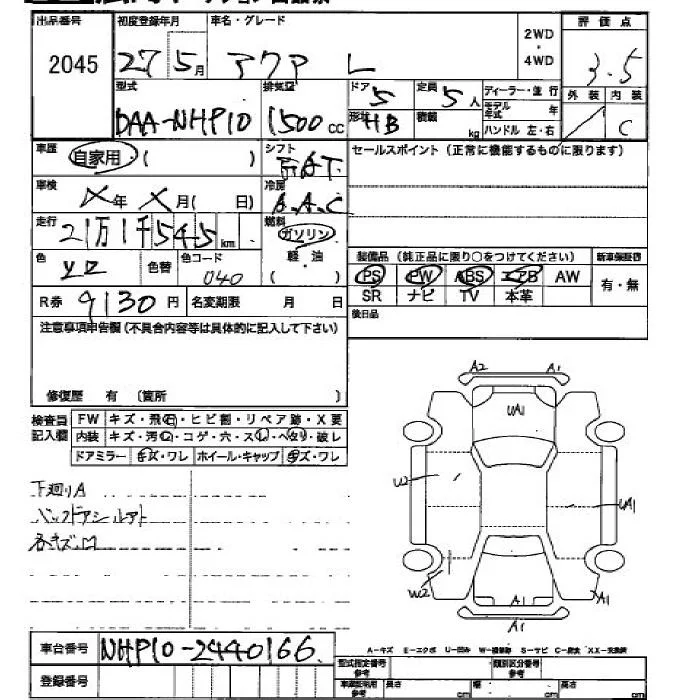 出品番号 初度登録年月 車名・グレード 2WD ・ 4WD 評価点
2045 27年 5月 アクア L 3.5
型式 排気量 ドア 定員 ディーラー・並行 外装 内装
DAA-NHP10 1500cc 5 5人 モデル年式 年
形状 HB 積載 kg ハンドル 左・右 C
車歴 自家用・( ) シフト FAT セールスポイント(正常に機能するものに限ります)
車検 X年 X月( 日) 冷房 A.A.C
走行 21万1千545km 燃料 ガソリン
色 シロ 色替 色コード 040 軽・油 ( )
装備品(純正品に限り○をつけてください) 新車保証書
PS PW ABS エアB AW 有・無
SR ナビ TV 本革
R券 9130円 名変期限 月 日
後日品
注意事項申告欄(不具合内容等は具体的に記入して下さい)
修復歴 有 〔箇所 〕
検査員記入欄 FW キズ・飛石・ヒビ割・リペア跡・X要
内装 キズ・汚○・コゲ・穴・スレ・ヘタリ・破レ
ドアミラー キズ・ワレ ホイール・キャップ キズ・ワレ
A2 A1
UA1
U2 UA1
W2 A1 A1
A1
下廻りA
バックドアシルアト
各キズ凹
A-キズ E-エクボ U-凹み W-補修跡 S-サビ C-腐食 XX-交換済
車台番号 NHP10-2440166
登録番号
型式指定番号 参考 類別区分番号 参考
車庫証明用 参考 長さ cm 幅 cm 高さ cm